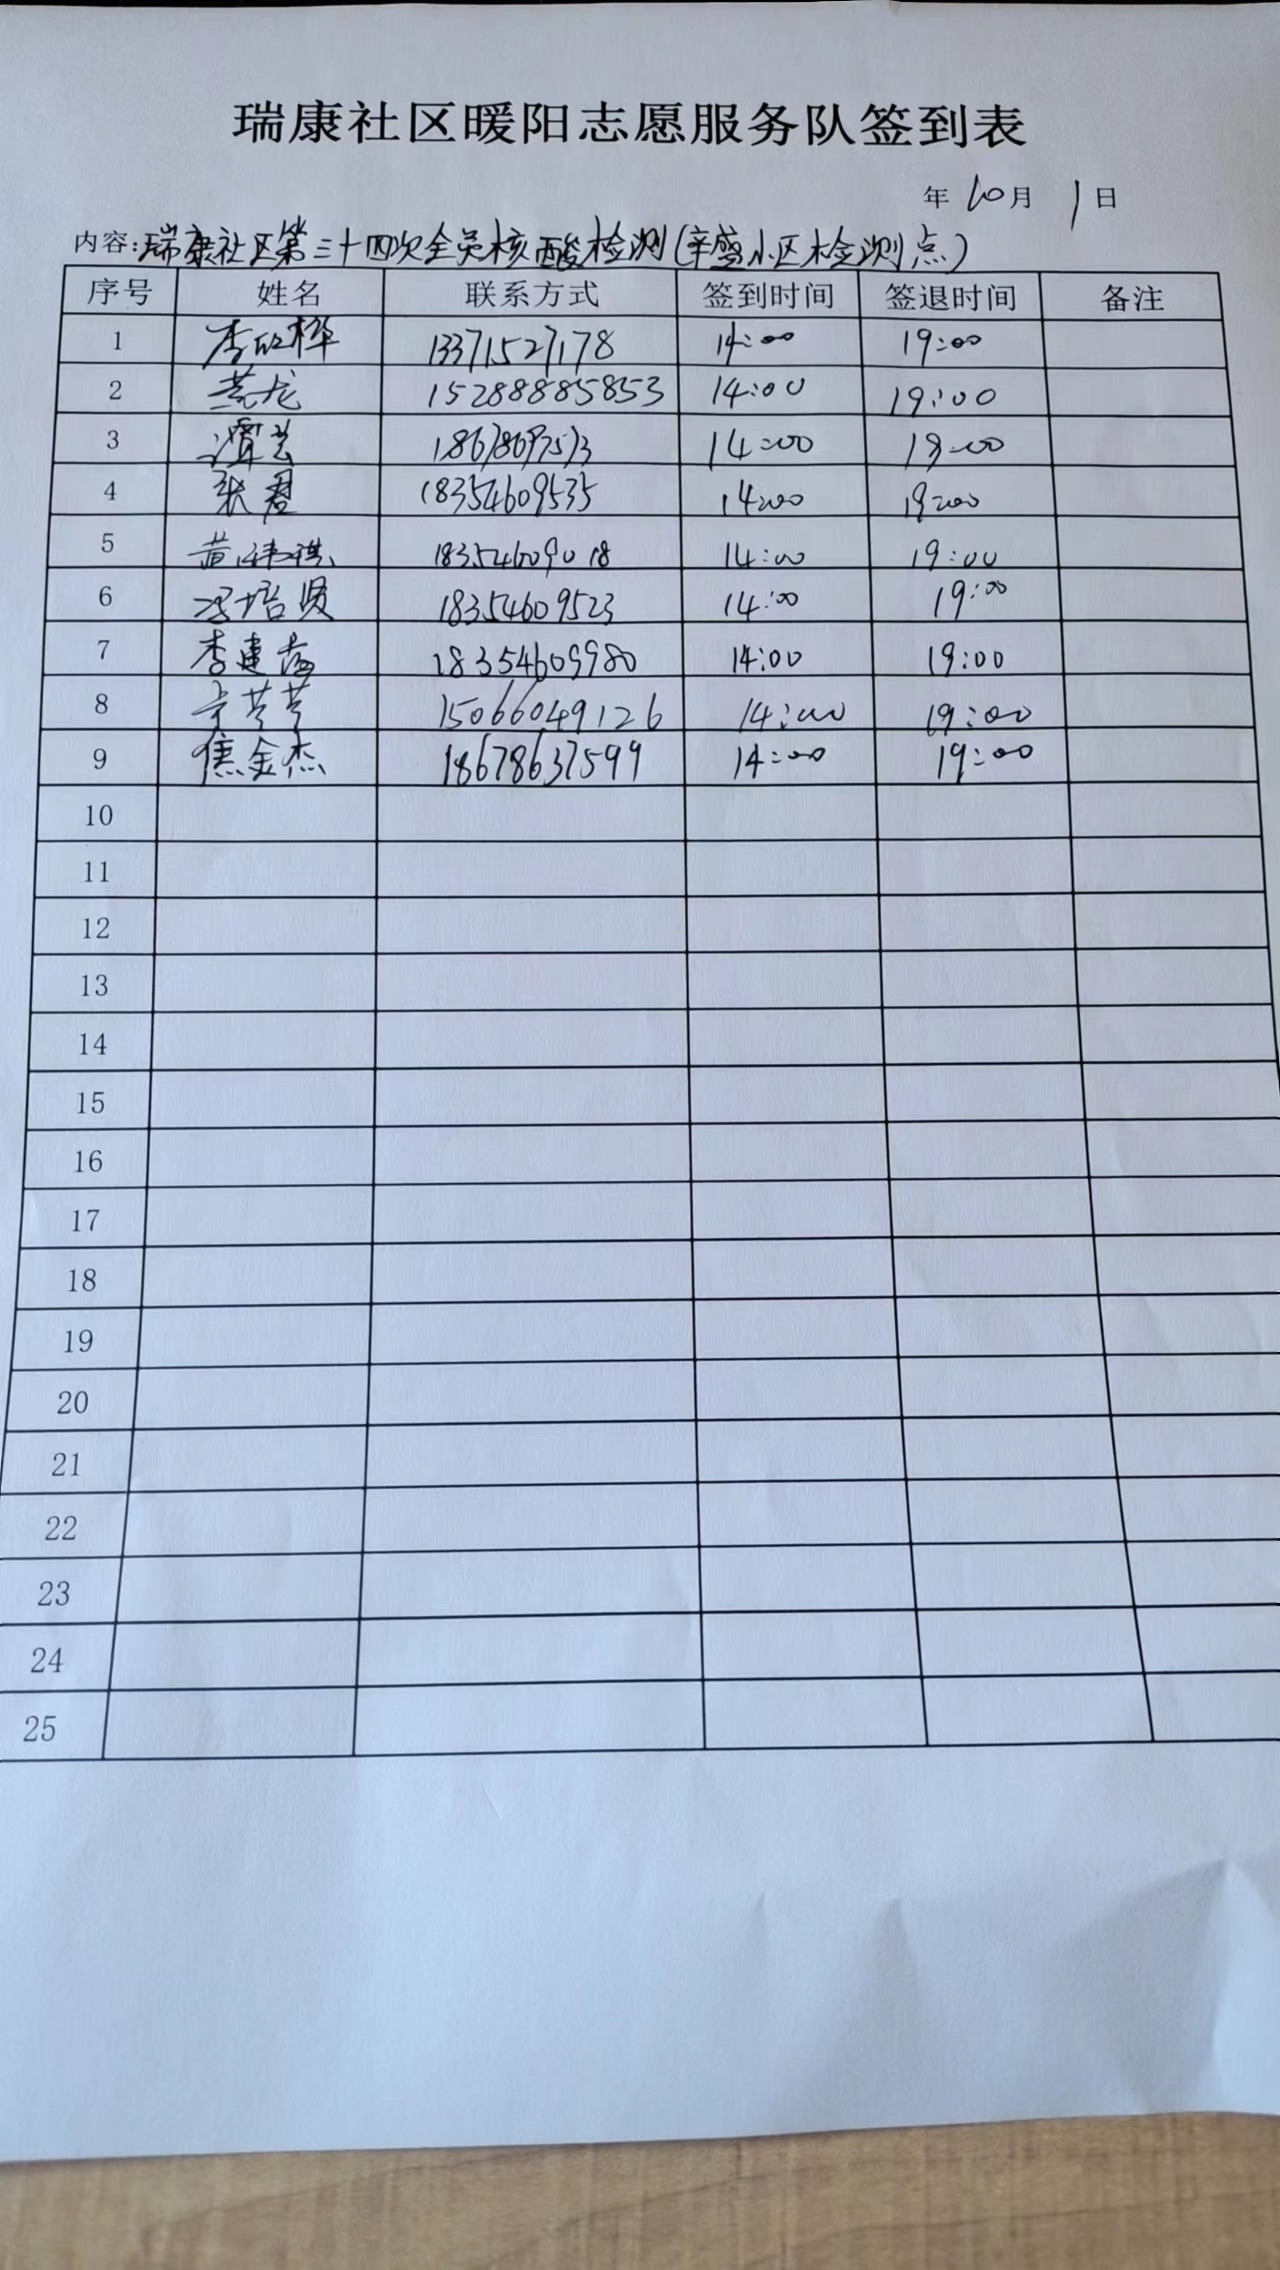 瑞康社区暖阳志愿服务队签到表
年 10月 1日
内容:瑞康社区第三十四次全员核酸检测(辛盛小区检测点)
序号 姓名 联系方式 签到时间 签退时间 备注
1 李 13371527178 14:00 19:00
2 龙 15288885853 14:00 19:00
3 18678697513 14:00 19:00
4 张君 18354609535 14:00 19:00
5 黄 18354609018 14:00 19:00
6 冯培贤 18354609523 14:00 19:00
7 李建 18354609980 14:00 19:00
8 15066049126 14:00 19:00
9 焦金杰 18678637599 14:00 19:00
10
11
12
13
14
15
16
17
18
19
20
21
22
23
24
25